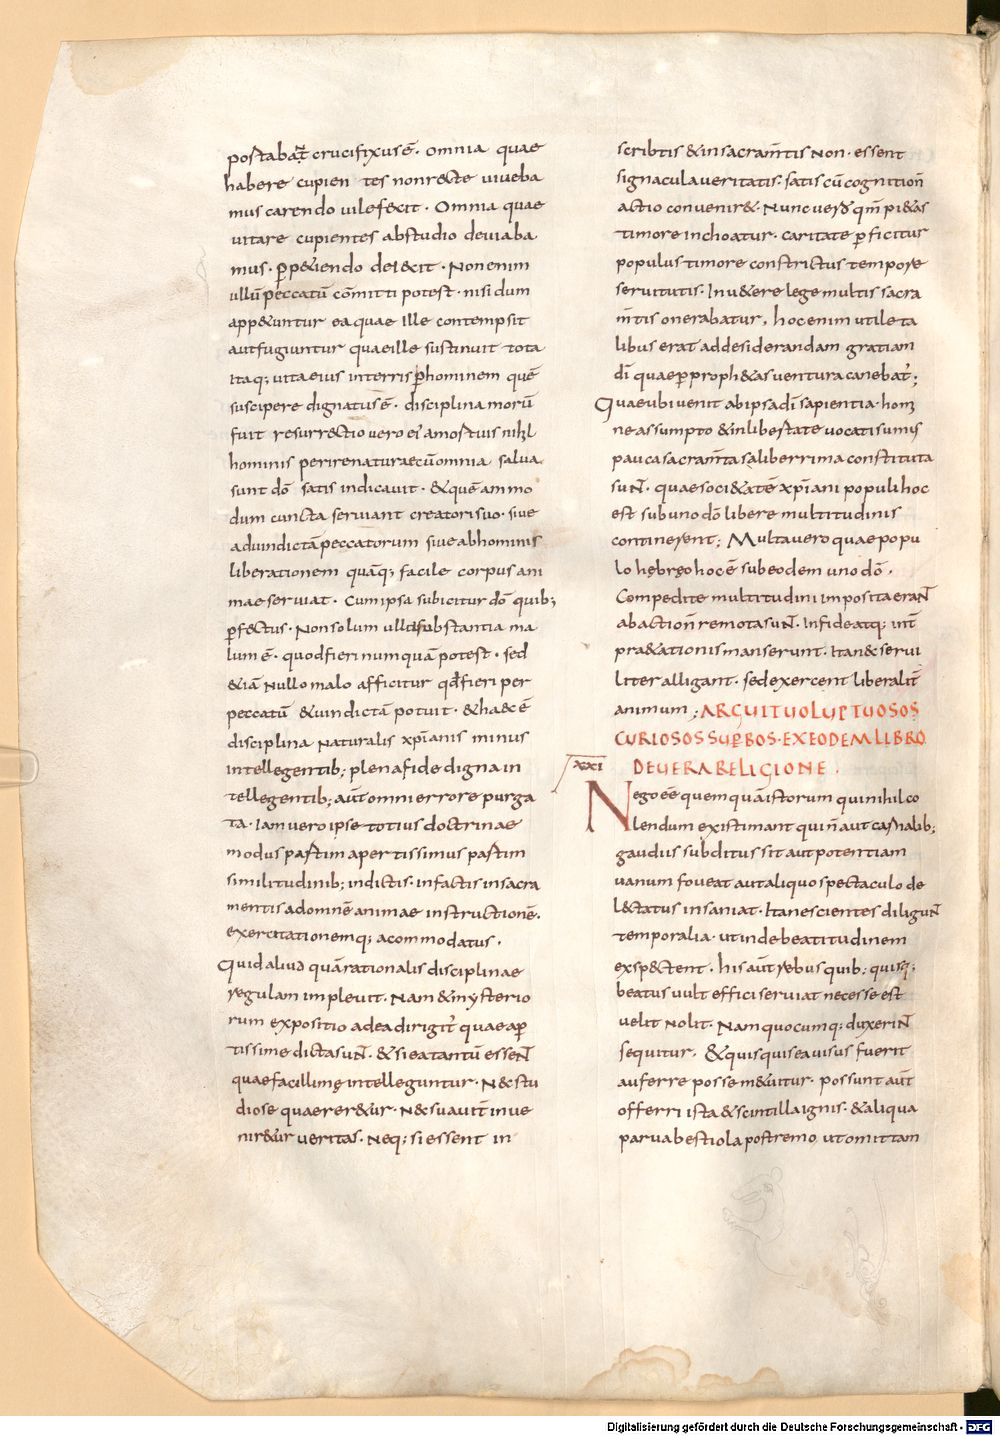 postabat̄ crucifixus ē. Omnia quae
habere cupien tes non recte viveba
mus carendo vile fecit. Omnia quae
vitare cupientes ab studio deviaba
mus. ꝑpetiendo deiecit. Non enim
ullū peccatū cōmitti potest. nisi dum
appetuntur ea quae ille contempsit
aut fugiuntur quae ille sustinuit tota
itaq; vita eius in terris ꝑ hominem quē
suscipere dignatus ē. disciplina morū
fuit resurrectio vero ei a mostuis nihil
hominis perire naturae cū omnia salva
sunt dō satis indicavit. & quē ammo
dum cuncta serviant creatori suo. sive
ad vindictā peccatorum sive ab hominis
liberationem quāq; facile corpus ani
mae serviat. Cum ipsa subicitur dō quib;
ꝑfectus. Non solum ulla substantia ma
lum ē. quod fieri numquā potest. sed
& iā nullo malo afficitur qđ fieri per
peccatū & vindictā potuit. & haec ē
disciplina naturalis xp̄ianis minus
intellegentib; plena fide digna in
tellegentib; aūt omni errore purga
ta. Iam vero ipse totius doctrinae
modus partim apertissimus partim
similitudinib; in dictis. in factis in sacra
mentis ad omnē animae instructionē.
exercitationemq; acommodatus.
Quid aliud quā rationalis disciplinae
regulam implevit. Nam & mysterio
rum expositio ad ea dirigit̄ quae aꝑ
tissime dicta suN̄. & si ea tantū esseN̄
quae facillime intelleguntur. Nec stu
diose quaereretur. Nec suavit̄ inve
niretur veritas. Neq; si essent in
scribtis & in sacram̄tis non. essent
signacula veritatis. satis cū cognition̄
actio conveniret. Nunc vero qm̄ pietas
timore inchoatur. caritate ꝑficitur
populus timore constrictus tempore
servitutis. In vetere lege multis sacra
m̄tis onerabatur, hoc enim utile ta
libus erat ad desiderandam gratiam
dī quae ꝑ prophetas ventura canebat̄;
Quae ubi venit ab ipsa dī sapientia. homi
ne assumpto & in libertate vocati sumus
pauca sacram̄ta saliberrima constituta
suN̄. quae societatē xp̄iani populi hoc
est sub uno dō libere multitudinis
continerent; Multa vero quae popu
lo hebreo hoc ē sub eodem uno dō.
Compedite multitudini imposita eraN̄
ab action̄ remota suN̄. In fide atq; int̄
praetationis manserunt. Ita nec servi
liter alligant. sed exercent liberalit̄
animum; ARGUIT VOLUPTUOSOS
CURIOSOS SUꝐBOS. EX EODEM LIBRO
DE VERA RELIGIONE.
XXXI
Nego eē quemquā istorum qui nihil co
lendum existimant qui n̄ aut carnalib;
gaudiis subditus sit aut potentiam
vanum foveat aut aliquo spectaculo de
lectatus insaniat. Ita nescientes diliguN̄
temporalia. ut inde beatitudinem
exspectent. his aūt rebus quib; quisq;
beatus vult effici serviat necesse est
velit nolit. Nam quocumq; duxeriN̄
sequitur. & quisquis ea visus fuerit
auferre posse metuitur. possunt aūt
offerri ista & scintilla ignis. & aliqua
parva bestiola postremo, ut omittam
Digitalisierung gefördert durch die Deutsche Forschungsgemeinschaft - DFG